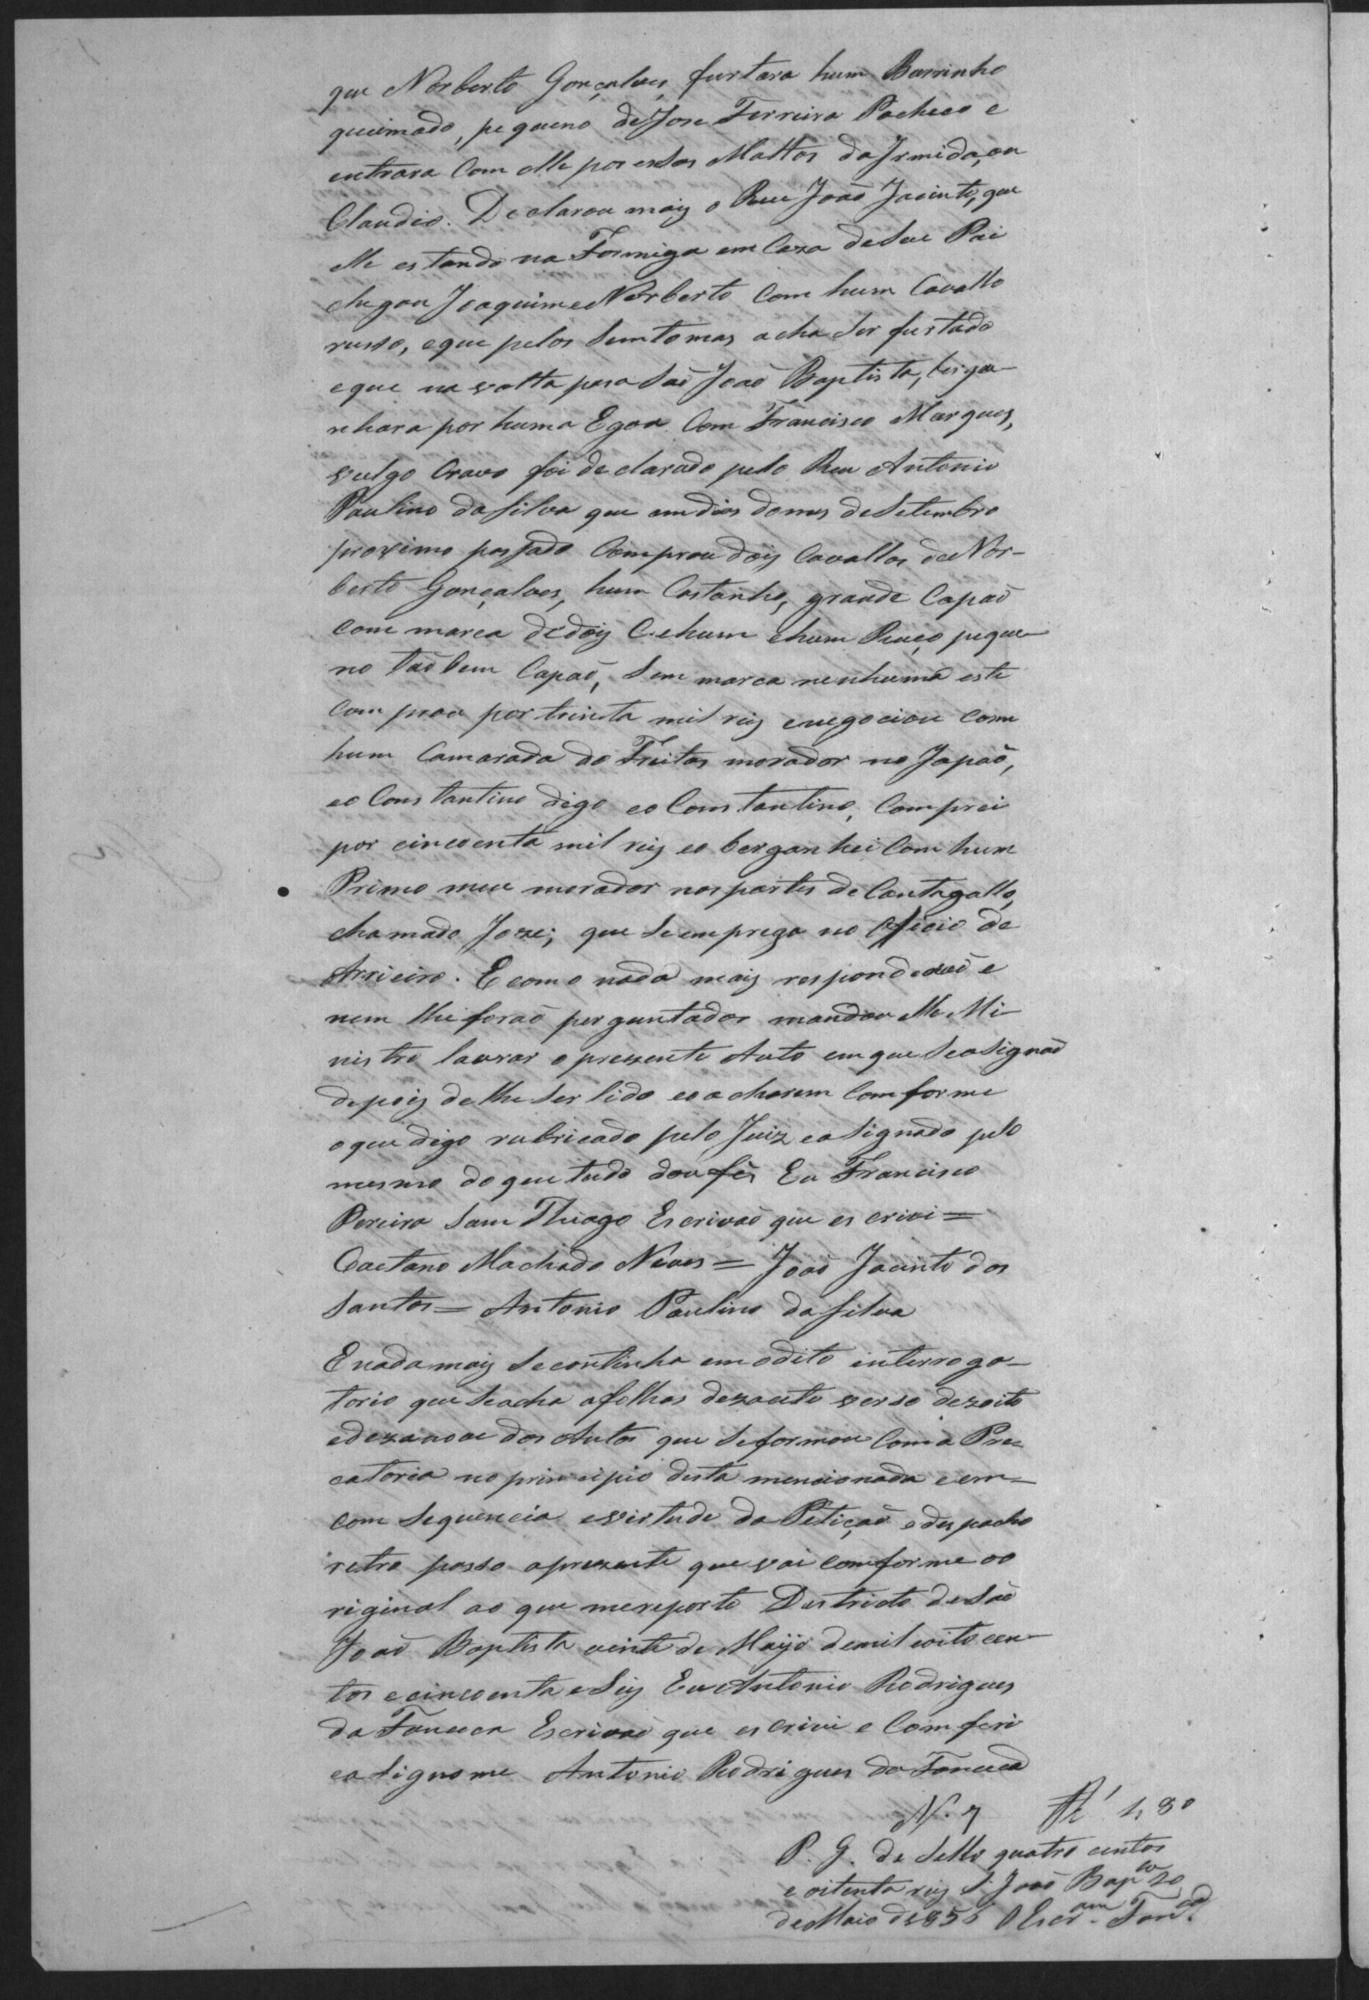 que Norberto Gonçalves, furtara hum Burrinho
queimado, pequeno de Jose Ferreira Pacheco e
entrara Com elle por estes Mattos da Irmida, ou
Claudio. Declarou mais o Reu João Jacinto, que
elle estando na Formiga em Caza de Seu Pai
chegou Joaquim e Norberto Com hum Cavallo
russo, e que pelos Simtomas acha Ser furtado
e que na volta para São João Baptista, berga-
nhara por huma Egoa Com Francisco Marques,
vulgo Cravo foi declarado pelo Reu Antonio
Paulino da Silva que em dias do mes de Setembro
proximo passado Comprou dois Cavallos de Nor-
berto Gonçalves, hum Castanho, grande Capaõ
com marca de dois C e hum e hum Ruço peque-
no taõ bem Capaõ, Sem marca nenhuma este
Comprou por trinta mil reis e negociou Com
hum Camarada do Freitas morador no Japaõ,
eo Constantino digo eo Constantino, Comprei
por cincoenta mil reis eo berganhei Com hum
Primo meu morador nas partes de Cantagallo,
chamado Joze; que Se emprega no Oficio de
Arrieiro. E como nada mais responderaõ e
nem lhe foraõ perguntados mandou elle Mi-
nistro lavrar o prezente Auto em que Se asignaõ
depois de lhe Ser lido e o acharem Comforme
o que digo rubricado pelo Juiz e asignado pelo
mesmo do que tudo dou fé Eu Francisco
Pereira Sam Thiago Escrivaõ que escrivi =
Caetano Machado Neves = Joaõ Jacinto dos
Santos = Antonio Paulino da Silva
E nada mais Se continha em o dito interroga-
torio que Se acha a folhas dezacete verso dezoito
e dezanove dos Autos que Se formou Com a Pre-
catoria no principio desta mencionada e em
com Sequencia e virtude da Petiçaõ e despacho
retro passo a prezente que vai comforme oo
riginal ao que me reporto Destricto de Saõ
Joaõ Baptista vinte de Maijo de mil oito cen-
tos e cincoenta e Seis Eu Antonio Rodrigues
da Fonceca Escrivaõ que escrivi e Comferi
e asignome Antonio Rodrigues da Fonceca
N. 7 480
P. G. de Sello quatro centos
e oitenta reis S. Joaõ Bapta 20
de Maio de 1856 O Escram Fonca